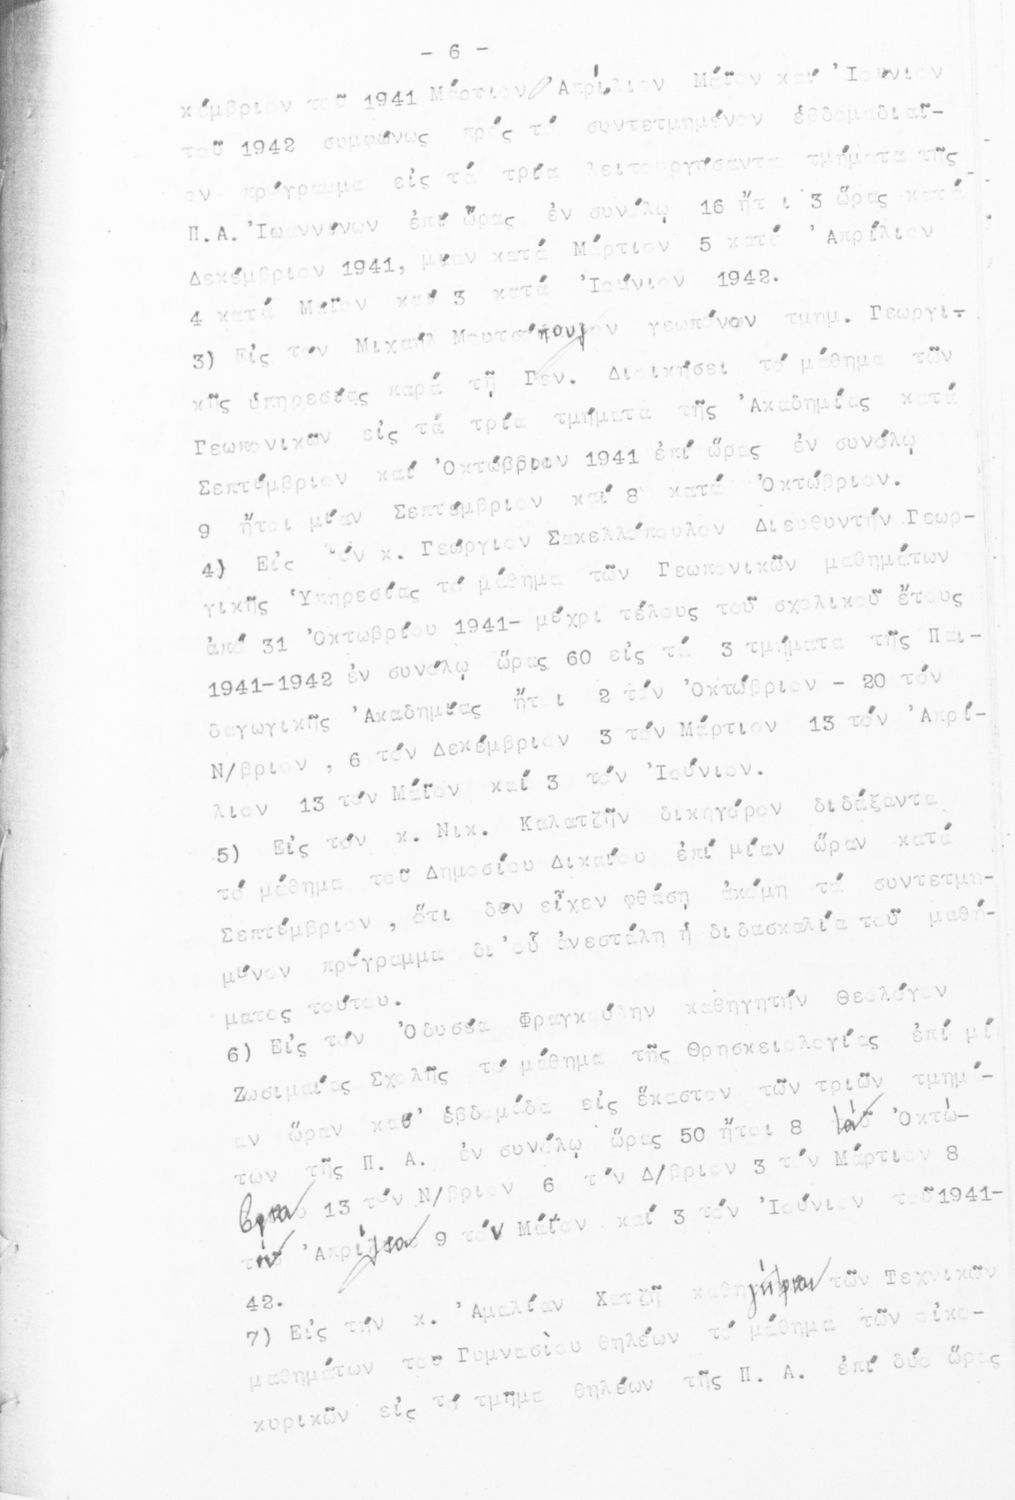 - 6 -
κέμβριον τοῦ 1941 Μάρτιον Ἀπρίλιον Μάϊον καί Ἰούνιον
τοῦ 1942 συμφώνως πρός τό συντετμημένον ἑβδομαδιαῖ-
ον πρόγραμμα εἰς τά τρία λειτουργήσαντα τμήματα τῆς
Π.Α. Ἰωαννίνων ἐπί ὥρας ἐν συνόλῳ 16 ἤτοι 3 ὥρας κατά
Δεκέμβριον 1941, μίαν κατά Μάρτιον 5 κατά Ἀπρίλιον
4 κατά Μάϊον καί 3 κατά Ἰούνιον 1942.
3) Εἰς τόν Μιχαήλ γεωπόνον τμημ. Γεωργι-
κῆς ὑπηρεσίας παρά τῇ Γεν. Διοικήσει τό μάθημα τῶν
Γεωπονικῶν εἰς τά τρία τμήματα τῆς Ἀκαδημίας κατά
Σεπτέμβριον καί Ὀκτώβριον 1941 ἐπί ὥρας ἐν συνόλῳ
9 ἤτοι μίαν Σεπτέμβριον καί 8 κατά Ὀκτώβριον.
4) Εἰς τόν κ. Γεώργιον Σακελλόπουλον Διευθυντήν Γεωρ-
γικῆς Ὑπηρεσίας τό μάθημα τῶν Γεωπονικῶν μαθημάτων
ἀπό 31 Ὀκτωβρίου 1941- μέχρι τέλους τοῦ σχολικοῦ ἔτους
1941-1942 ἐν συνόλῳ ὥρας 60 εἰς τά 3 τμήματα τῆς Παι-
δαγωγικῆς Ἀκαδημίας ἤτοι 2 τόν Ὀκτώβριον - 20 τόν
Ν/βριον , 6 τόν Δεκέμβριον 3 τόν Μάρτιον 13 τόν Ἀπρί-
λιον 13 τόν Μάϊον καί 3 τόν Ἰούνιον.
5) Εἰς τόν κ. Νικ. Καλατζῆν δικηγόρον διδάξαντα
τό μάθημα τοῦ Δημοσίου Δικαίου ἐπί μίαν ὥραν κατά
Σεπτέμβριον , ὅτι δέν εἶχεν φθάσῃ ἀκόμη τό συντετμη-
μένον πρόγραμμα δι'οὗ ἀνεστάλη ἡ διδασκαλία τοῦ μαθή-
ματος τούτου.
6) Εἰς τόν Ὀδυσέα Φραγκούλην καθηγητήν Θεολόγον
Ζωσιμαίας Σχολῆς τό μάθημα τῆς Θρησκειολογίας ἐπί μί
αν ὥραν καθ' ἑβδομάδα εἰς ἕκαστον τῶν τριῶν τμημά-
των τῆς Π. Α. ἐν συνόλῳ ὥρας 50 ἤτοι 8 τόν Ὀκτώ-
βριον 13 τόν Ν/βριον 6 τόν Δ/βριον 3 τόν Μάρτιον 8
τόν Ἀπρίλιον 9 τόν Μάϊον καί 3 τόν Ἰούνιον τοῦ 1941-
42.
7) Εἰς τήν κ. Ἀμαλίαν Χατζῆ καθηγήτριαν τῶν Τεχνικῶν
μαθημάτων τοῦ Γυμνασίου Θηλέων τό μάθημα τῶν οἰκο-
κυρικῶν εἰς τό τμῆμα θηλέων τῆς Π. Α. ἐπί δύο ὥρας